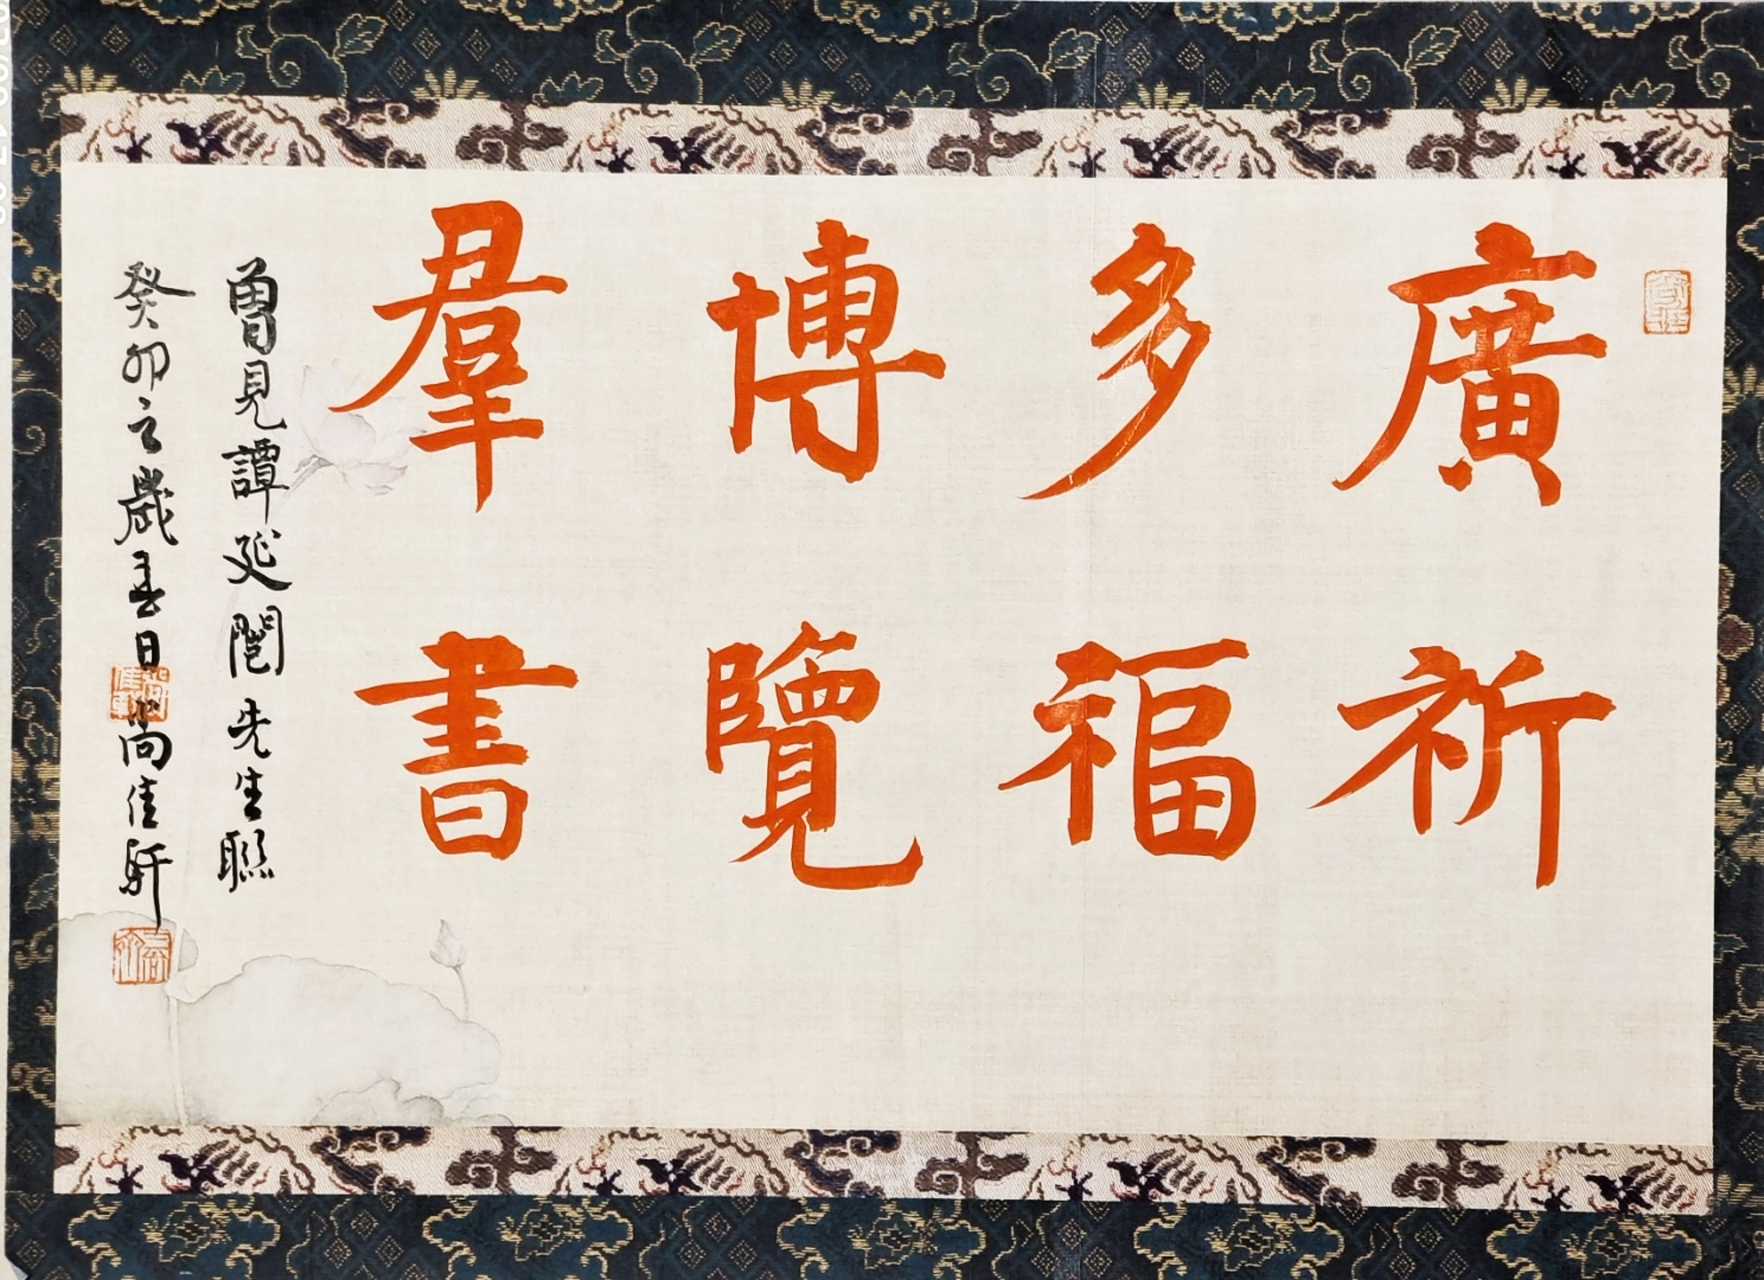 廣祈
多福
博覽
羣書
曾見譚延闓先生聯
癸卯之歲春日尚佳軒